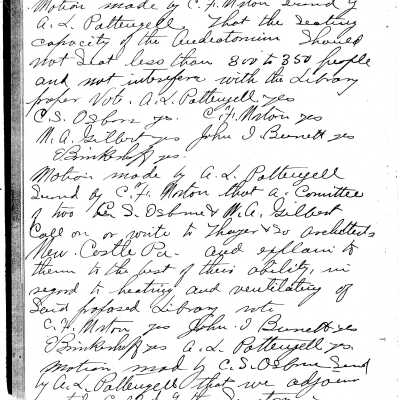 Motion made by C. H. Morton Second by
A. L. Pattengell. That the Seating
capacity of the Audeotonium Should
not Seat less than 300 to 350 people
and not interfere with the Library
proper Vote. A. L. Pattengell. yes
C. S. Osborn yes. C. H. Morton yes
W. A. Gilbert yes John I Burnett yes
E Brinkerhoff yes.
Motion made by A. L. Pattengell
Second by C. H. Morton that a. Comittee
of two C. S. Osborne & W. A. Gilbert
Call on or write to Thayer & Co archetects
New Castle Pa. and explain to
them to the best of their ability, in
regard to heating and ventilating of
Said proposed Library vote
C. H. Morton yes John I Burnett yes
E Brinkerhoff yes A. L. Pattengell yes.
Motion made by C. S. Osborn Second
by A. L. Pattengell that we adjourn